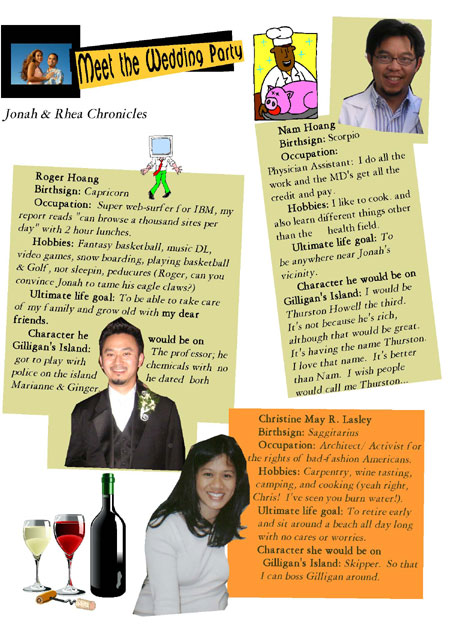 Meet the Wedding Party
Jonah & Rhea Chronicles
Roger Hoang
Birthsign: Capricorn
Occupation: Super web-surfer for IBM, my
report reads "can browse a thousand sites per
day" with 2 hour lunches.
Hobbies: Fantasy basketball, music DL,
video games, snow boarding, playing basketball
& Golf, not sleepin, peducures (Roger, can you
convince Jonah to tame his eagle claws?)
Ultimate life goal: To be able to take care
of my family and grow old with my dear
friends.
Character he would be on
Gilligan's Island: The professor; he
got to play with chemicals with no
police on the island he dated both
Marianne & Ginger
Nam Hoang
Birthsign: Scorpio
Occupation:
Physician Assistant: I do all the
work and the MD's get all the
credit and pay.
Hobbies: I like to cook. and
also learn different things other
than the health field.
Ultimate life goal: To
be anywhere near Jonah's
vicinity.
Character he would be on
Gilligan's Island: I would be
Thurston Howell the third.
It's not because he's rich,
although that would be great.
It's having the name Thurston.
I love that name. It's better
than Nam. I wish people
would call me Thurston...
Christine May R. Lasley
Birthsign: Saggitarius
Occupation: Architect/ Activist for
the rights of bad-fashion Americans.
Hobbies: Carpentry, wine tasting,
camping, and cooking (yeah right,
Chris! I've seen you burn water!).
Ultimate life goal: To retire early
and sit around a beach all day long
with no cares or worries.
Character she would be on
Gilligan's Island: Skipper. So that
I can boss Gilligan around.